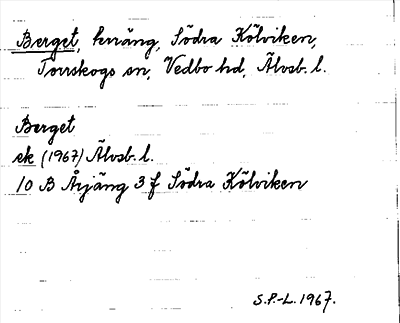 Berget, hmäng, Södra Kölviken,
Torrskogs sn, Vedbo hd, Älvsb. l.
Berget
ek (1967) Älvsb. l.
10 B Årjäng 3 f Södra Kölviken
S.P.-L. 1967.